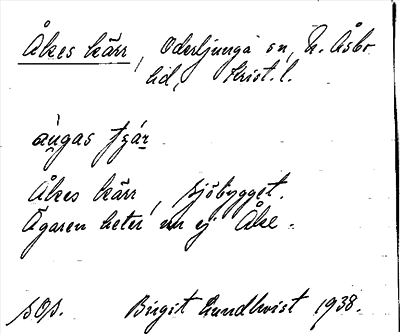 Åkes kärr, Oderljunga sn, N. Åsbo
hd, Krist. l.
Åkes kärr, sjöbygget.
Ägaren heter nu ej Åke.
Birgit Lundkvist 1938.